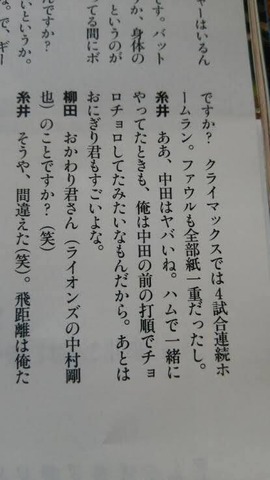 ャーはいるん
です。バット
すか、身体の
というのが
ってる間にボ
んですか？
いというか。
な。で、ギー
ですか？　クライマックスでは４試合連続ホ
ームラン。ファウルも全部紙一重だったし。
糸井　ああ、中田はヤバいね。ハムで一緒に
やってたときも、俺は中田の前の打順でチョ
ロチョロしてたみたいなもんだから。あとは
おにぎり君もすごいよな。
柳田　おかわり君さん（ライオンズの中村剛
也）のことですか？（笑）
糸井　そうや、間違えた（笑）。飛距離は俺た